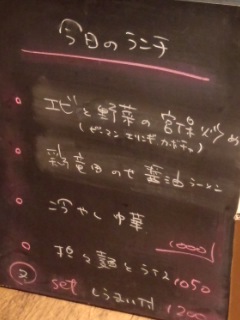 今日のランチ
エビと野菜の宮保炒め
(ピーマン エリンギ カボチャ)
彩竜田のせ醤油ラーメン
冷やし中華
1000
担々麺とライス 1050
② set しゅうまい付 1200